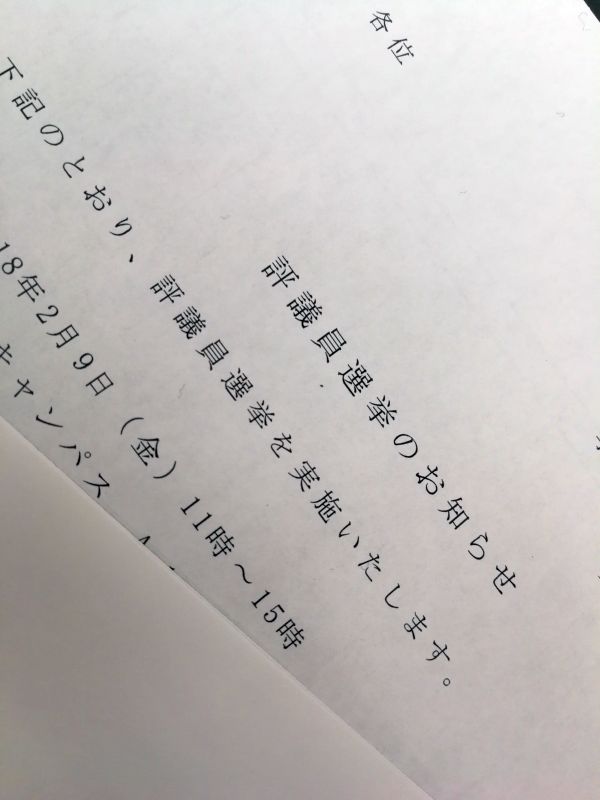 各位
評議員選挙のお知らせ
下記のとおり、評議員選挙を実施いたします。
18年2月9日（金）11時～15時
キャンパス